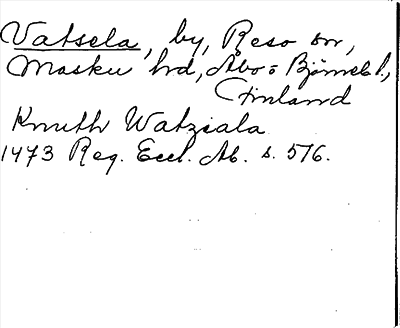 Vatsela, by, Reso sn,
Masku hd, Åbo o Björneb l.,
Finland
Knuth Watziala
1473 Reg. Eccl. Ab. s. 576.